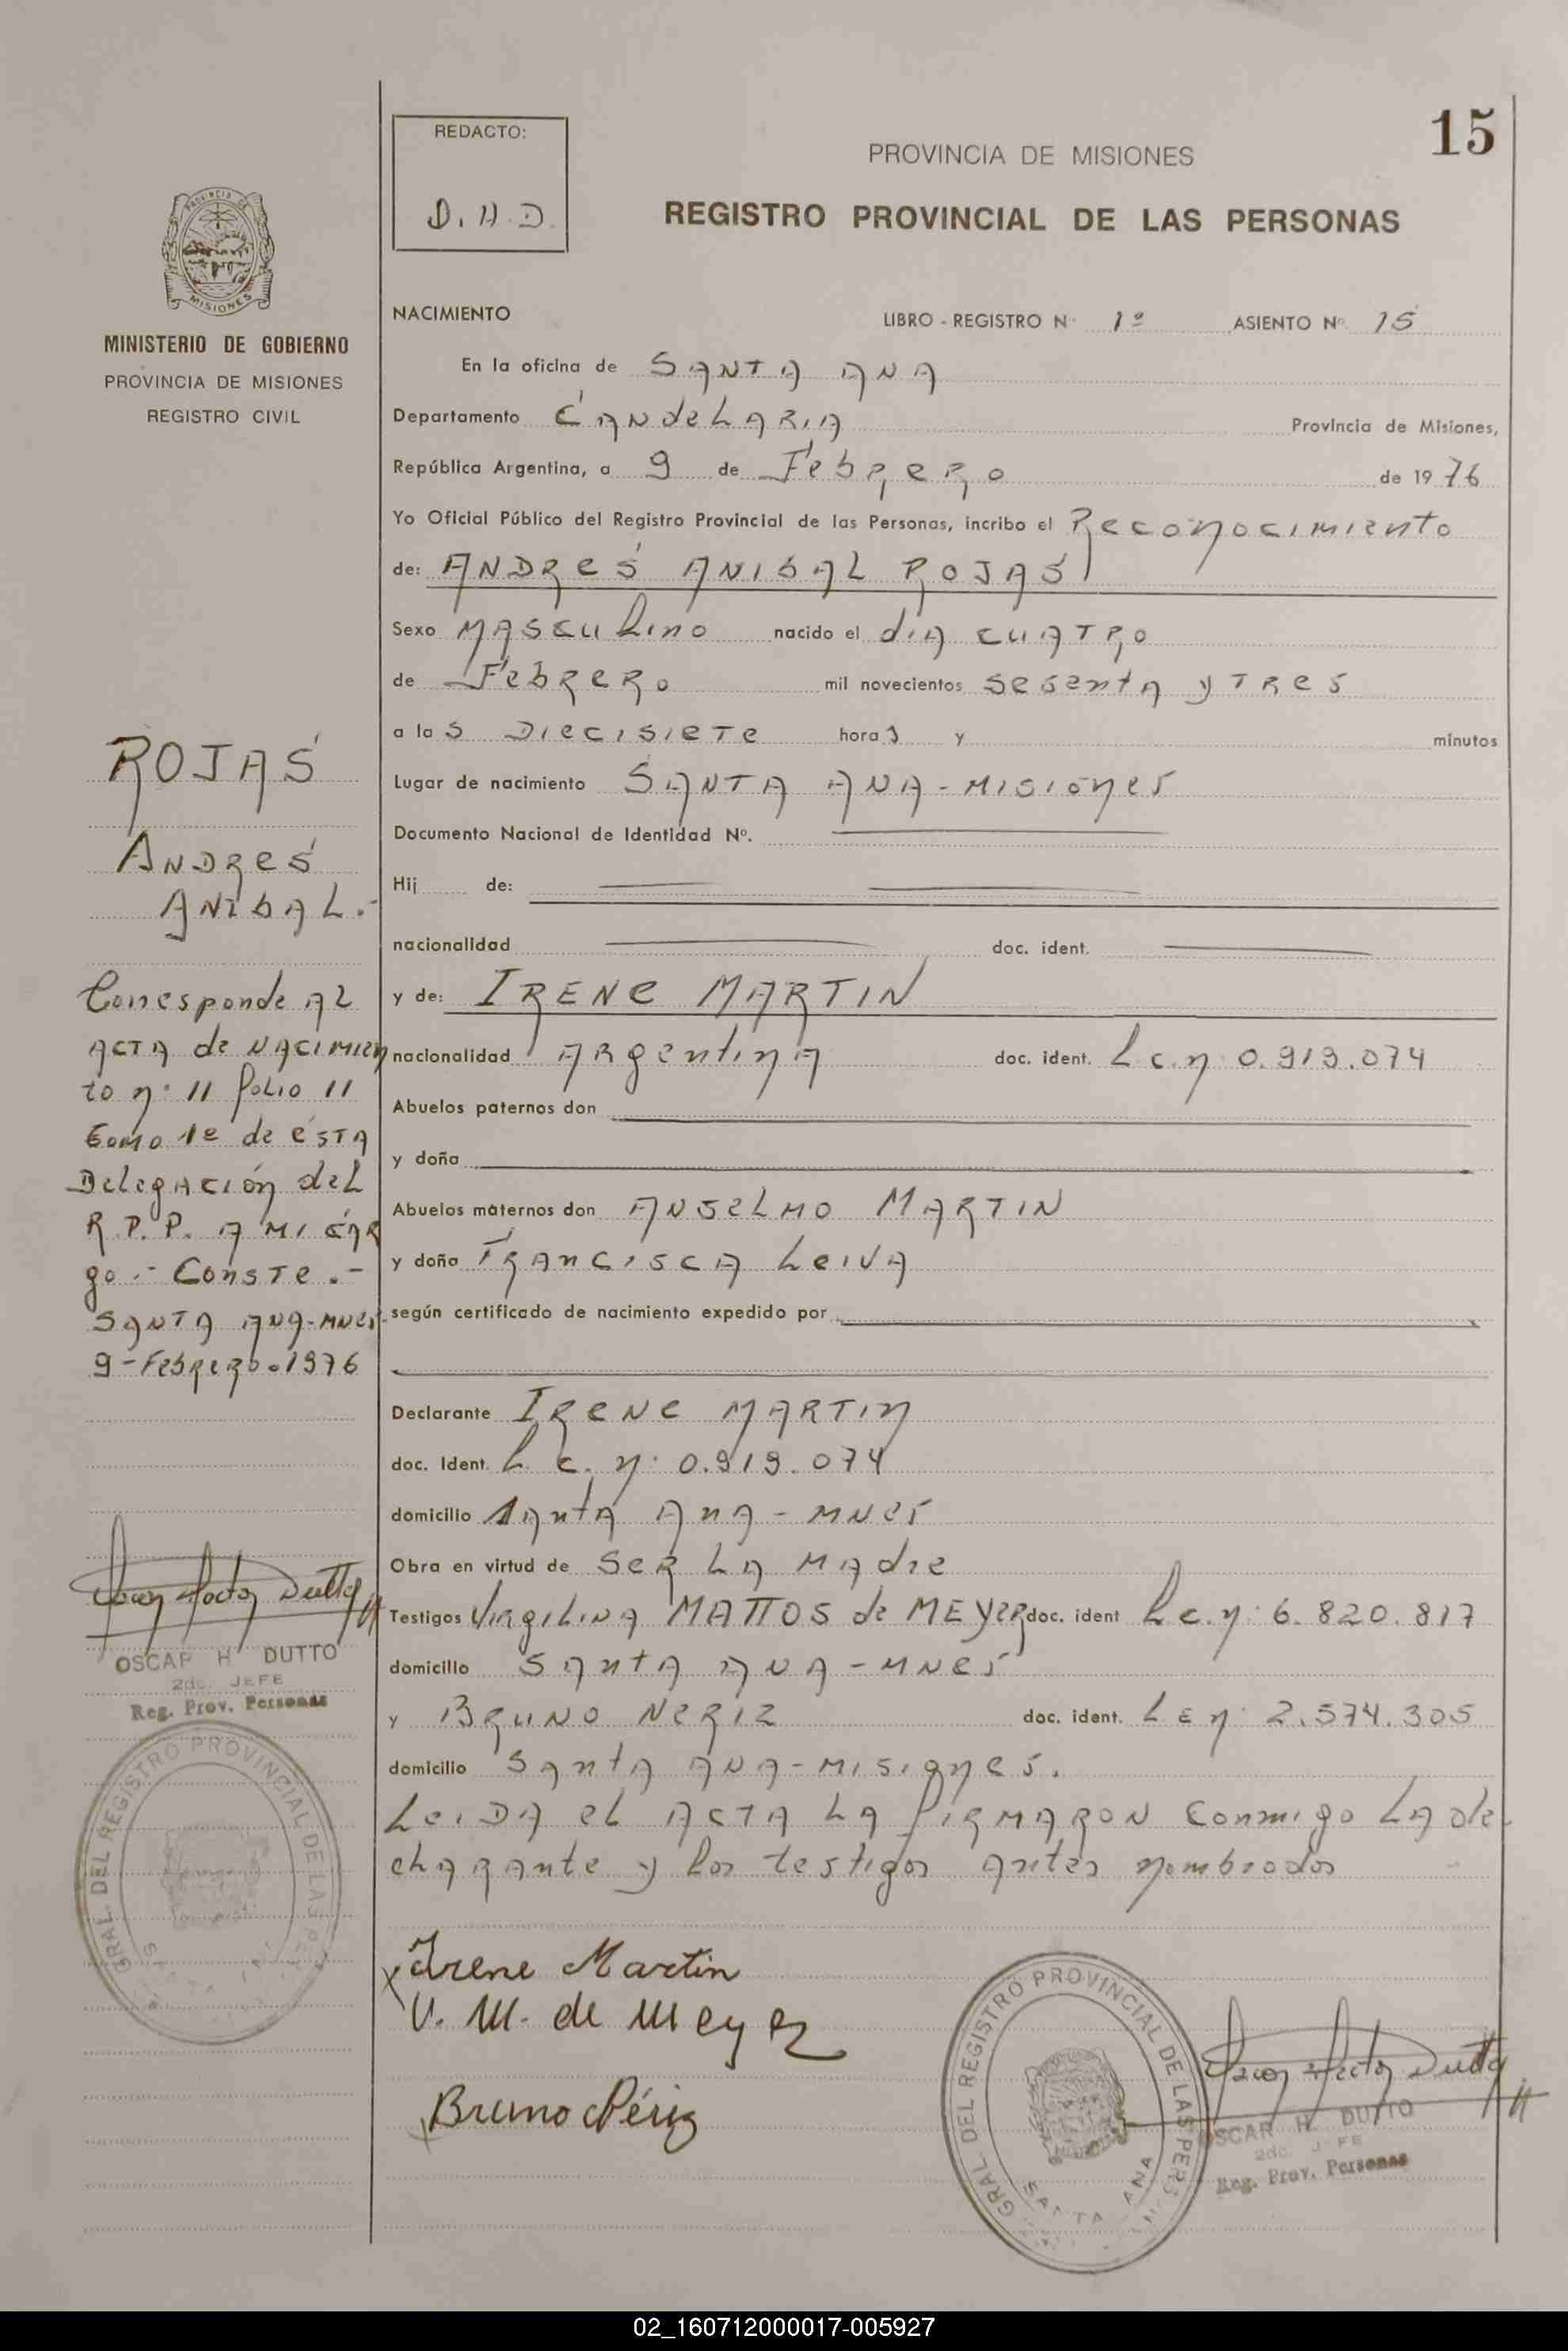 15
REDACTO:
D. H. D.
PROVINCIA DE MISIONES
REGISTRO PROVINCIAL DE LAS PERSONAS
PROVINCIA DE
MISIONES
MINISTERIO DE GOBIERNO
PROVINCIA DE MISIONES
REGISTRO CIVIL
ROJAS
ANDRES
ANIBAL.-
Corresponde AL
ACTA de NACIMIEN
to n: 11 folio 11
tomo 1º de ESTA
DelegAción del
R.P.P. A MI CAR
go.- CONSTE.-
SANTA ANA-MNES-
9-Febrero-1976
OSCAR H DUTTO
2do. JEFE
Reg. Prov. Personas
GRAL. DEL REGISTRO PROVINCIAL DE LAS PER
NACIMIENTO LIBRO - REGISTRO Nº 1º ASIENTO Nº 15
En la oficina de SANTA ANA
Departamento CANdeLARIA Provincia de Misiones,
República Argentina, a 9 de Febrero de 1976
Yo Oficial Público del Registro Provincial de las Personas, incribo el Reconocimiento
de: ANDRES ANIBAL ROJAS
Sexo MAScuLino nacido el díA CUATRO
de Febrero mil novecientos sesentA y TRes
a las Diecisiete horas y minutos
Lugar de nacimiento SANTA ANA-Misiones
Documento Nacional de Identidad Nº.
Hij de:
nacionalidad doc. ident.
y de: IRENE MARTIN
nacionalidad ARgentinA doc. ident. L c. n: 0.919.074
Abuelos paternos don
y doña
Abuelos maternos don ANSELMO MARTIN
y doña FRANCISCA LEIVA
según certificado de nacimiento expedido por
Declarante IRENE MARTIN
doc. Ident. L. c. n: 0.919.074
domicilio SAntA AnA - MNES
Obra en virtud de SER LA MAdre
Testigos VirgiLinA MATTOS de MEYER doc. ident L c. n: 6.820.817
domicilio SAntA ANA-MNES
y BRUNO NERIZ doc. ident. L E n: 2.574.305
domicilio SAntA ANA-Misiones.
LeiDA eL ACTA LA firMARON conmigo LA de
clARAnte y los testigos antes nombrados
Irene Martin
V. M. de Meyer
Bruno Nériz
GRAL. DEL REGISTRO PROVINCIAL DE LAS PERS
SANTA ANA
OSCAR H. DUTTO
2do. JEFE
Reg. Prov. Personas
02_160712000017-005927